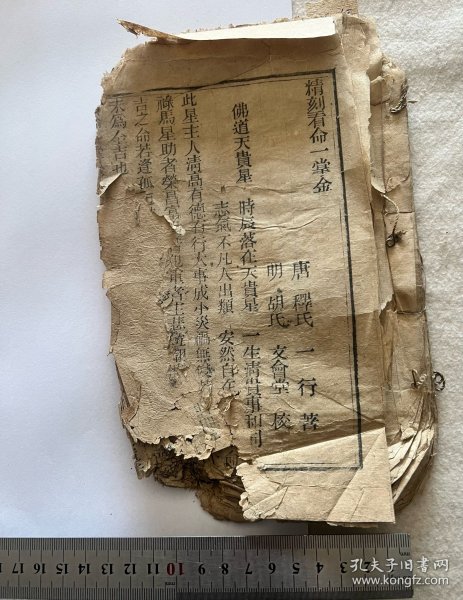 精刻看命一掌金
唐 釋氏 一行 著
明 胡氏 文會堂 校
佛道天貴星 時辰落在天貴星 一生清貴事和同
志氣不凡人出類 安然自在
此星主人清高有德有行大事成小災禍無
祿馬星助者榮昌
吉之命若逢孤
未為全吉也
17 16 15 14 13 12 11 10 9 8 7 6 5 4 3 2 1
孔夫子旧书网
www.kongfz.com